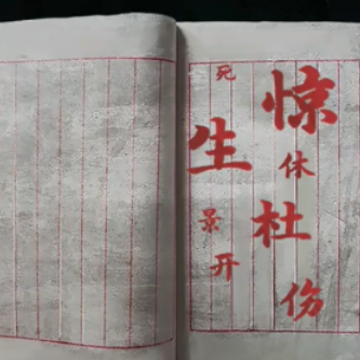 惊休杜伤
死生景开